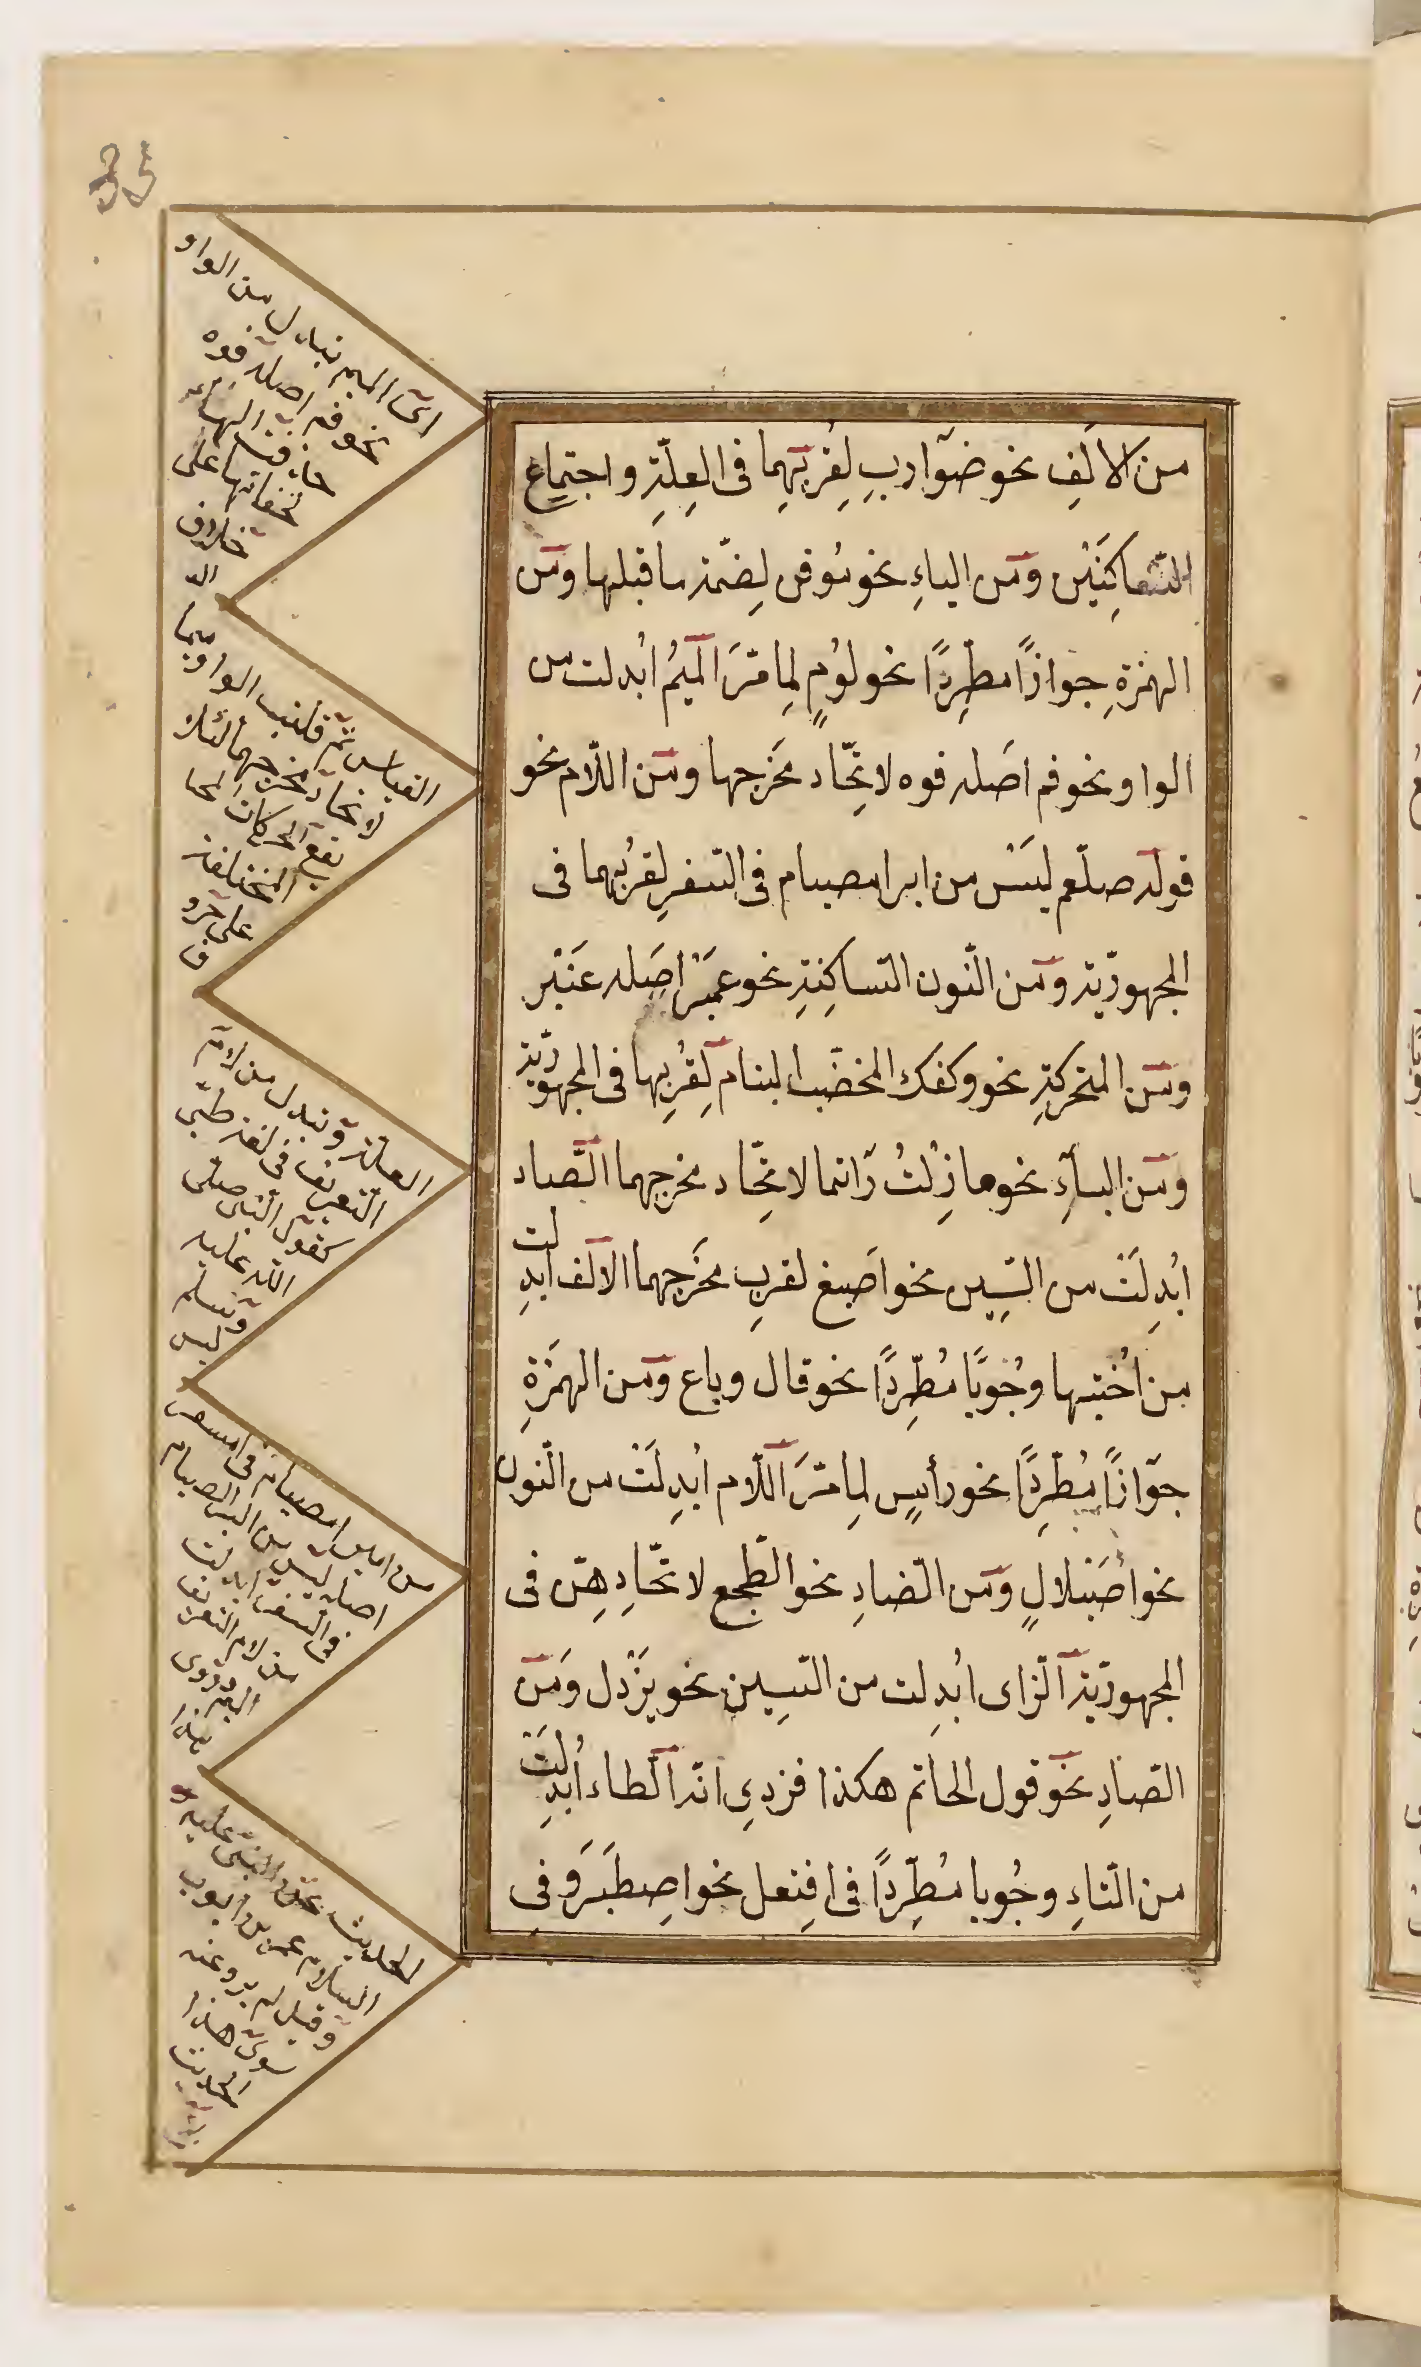 من الالَفِ نحو ضوَارِبِ لِقُربِهِما فی العِلّةِ واجتِماع
السّاكِنَيْن ومن الياءِ نحو موقن لِضمّة ما قبلها ومن
الهمزةِ جوازًا مطّرِدًا نحو لوُمٍ لِما مرَّ الميمُ ابُدلت من
الواو نحو فم اصَله فوه لاتِحّاد مخَرجها ومن اللّام نحو
قوله صلّعم ليَسَ من امبرامصيام فی السّفرِ لقربُهما فی
المجهوريّة ومن النّون السّاكِنةِ نحو عمَبْر اصَله عَنبْر
ومن المتحركةِ نحو وكفك المخضّب البنام لِقُرِبها فی المجهوريّة
ومن الباَءِ نحو ما زِلْتُ رَاتما لاتِحّاد مخرجهما الصّاد
ابُدِلَتْ من السّيِن نحو اصَبغ لقربِ مخَرجهما الالَف ابُدِلت
من اخُتيها وجُوبًا مُطّرِدًا نحو قال وباع ومن الهمَزةِ
جوَازًا مُطّرِدًا نحو رأسٍ لِما مرَّ اللّام ابُدِلَتْ من النّون
نحو أصَيْلالٍ ومن الضّادِ نحو الطّجع لاتّحادِهِنّ فی
المجهوريّة الزّای ابُدِلت من السّيِن نحو يَزْدل ومَن
الصّادِ نحو قول الحاتم هكذا فزدی انّه الطاء ابُدِلَتْ
من التّاءِ وجُوبا مُطّرِدًا فی افِتعل نحو اصِطَبَرَ و فی
ای الميم تبدل من الواو
نحو فم اصله فوه
حذفت الهاء
لخفائها علی
خلاف
القياس ثم قلبت الواو ميما
لاتحاد مخرجهما لئلا
يقع الحركات
المختلفة
علی حرو
ف
العلة وتبدل من لام
التعريف فی لغة طی
كقول النبی صلی
الله عليه
وسلم
ليس
من امبر امصيام فی امسفر
اصله ليس من البر الصيام
فی السفر ابدلت
من لام التعريف
الميم وروی
هذا
الحديث عن النبی عليه
السلام
وقيل لم يرو عنه
سوی هذا
الحديث